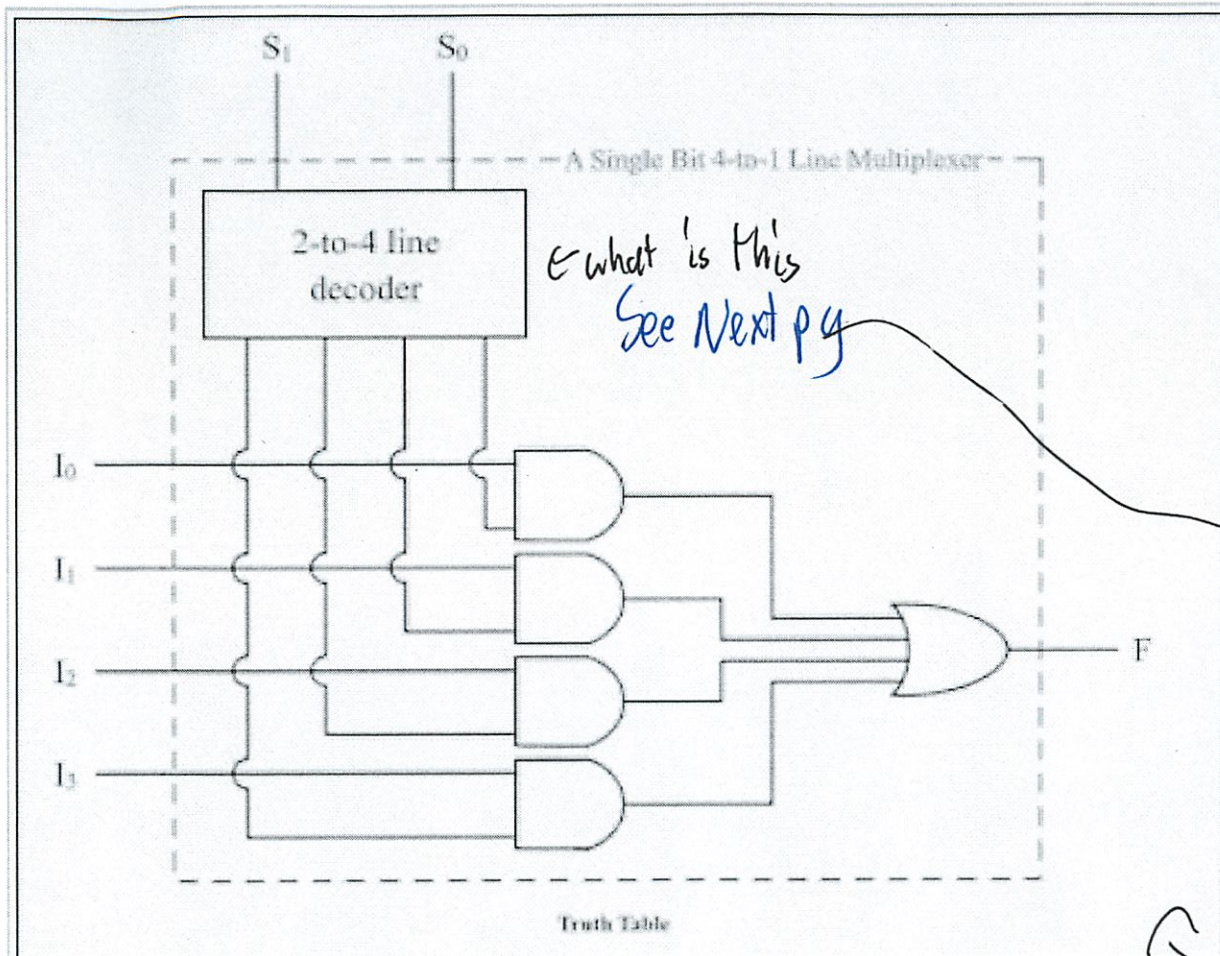 S₁ S₀
A Single Bit 4-to-1 Line Multiplexer
2-to-4 line
decoder
← what is this
See Next pg
I₀
I₁
I₂
F
I₃
Truth Table